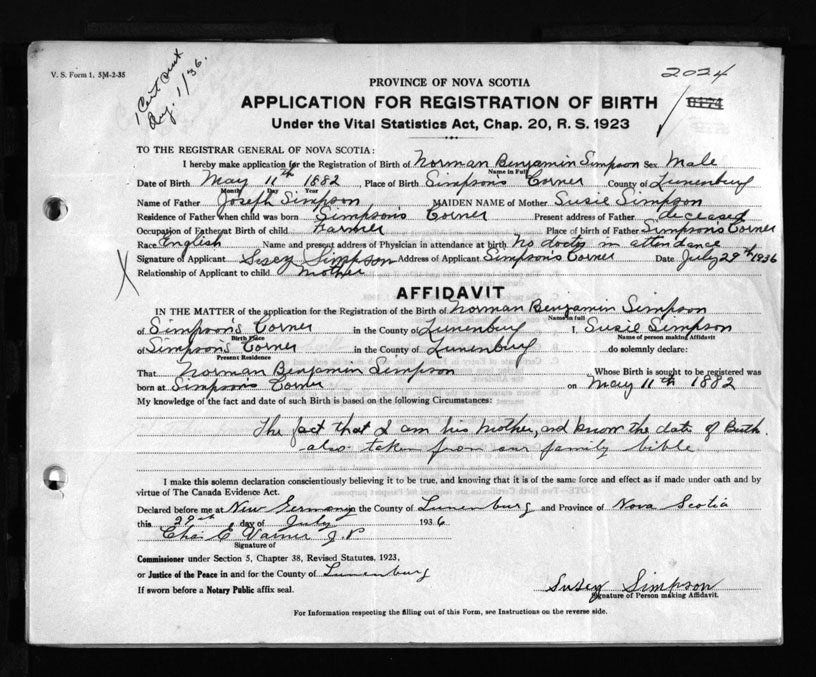 V. S. Form 1. 5M-2-35
1 Cert sent
Aug. 1/36.
2024
PROVINCE OF NOVA SCOTIA
APPLICATION FOR REGISTRATION OF BIRTH
Under the Vital Statistics Act, Chap. 20, R. S. 1923
TO THE REGISTRAR GENERAL OF NOVA SCOTIA:
I hereby make application for the Registration of Birth of Norman Benjamin Simpson Sex Male
Name in Full
Date of Birth May 11th 1882, Place of Birth Simpson's Corner County of Lunenburg
Month Day Year
Name of Father Joseph Simpson MAIDEN NAME of Mother Susie Simpson
Residence of Father when child was born Simpson's Corner Present address of Father deceased
Occupation of Father at Birth of child Farmer Place of birth of Father Simpson's Corner
Race English Name and present address of Physician in attendance at birth No doctor in attendance
Signature of Applicant Susey Simpson Address of Applicant Simpson's Corner Date July 29th 1936
X Relationship of Applicant to child mother
AFFIDAVIT
IN THE MATTER of the application for the Registration of the Birth of Norman Benjamin Simpson
Name in full
of Simpson's Corner in the County of Lunenburg I, Susie Simpson
Birth Place Name of person making Affidavit
of Simpson's Corner in the County of Lunenburg do solemnly declare:
Present Residence
That Norman Benjamin Simpson Whose Birth is sought to be registered was
born at Simpson's Corner on May 11th 1882
My knowledge of the fact and date of such Birth is based on the following Circumstances:
The fact that I am his Mother, and know the date of Birth.
also taken from our family bible
I make this solemn declaration conscientiously believing it to be true, and knowing that it is of the same force and effect as if made under oath and by
virtue of The Canada Evidence Act.
Declared before me at New Germany the County of Lunenburg and Province of Nova Scotia
this 29th day of July 1936
Chas E Varner J.P
Signature of
Commissioner under Section 5, Chapter 38, Revised Statutes, 1923,
or Justice of the Peace in and for the County of Lunenburg
If sworn before a Notary Public affix seal. Susey Simpson
Signature of Person making Affidavit.
For Information respecting the filling out of this Form, see Instructions on the reverse side.